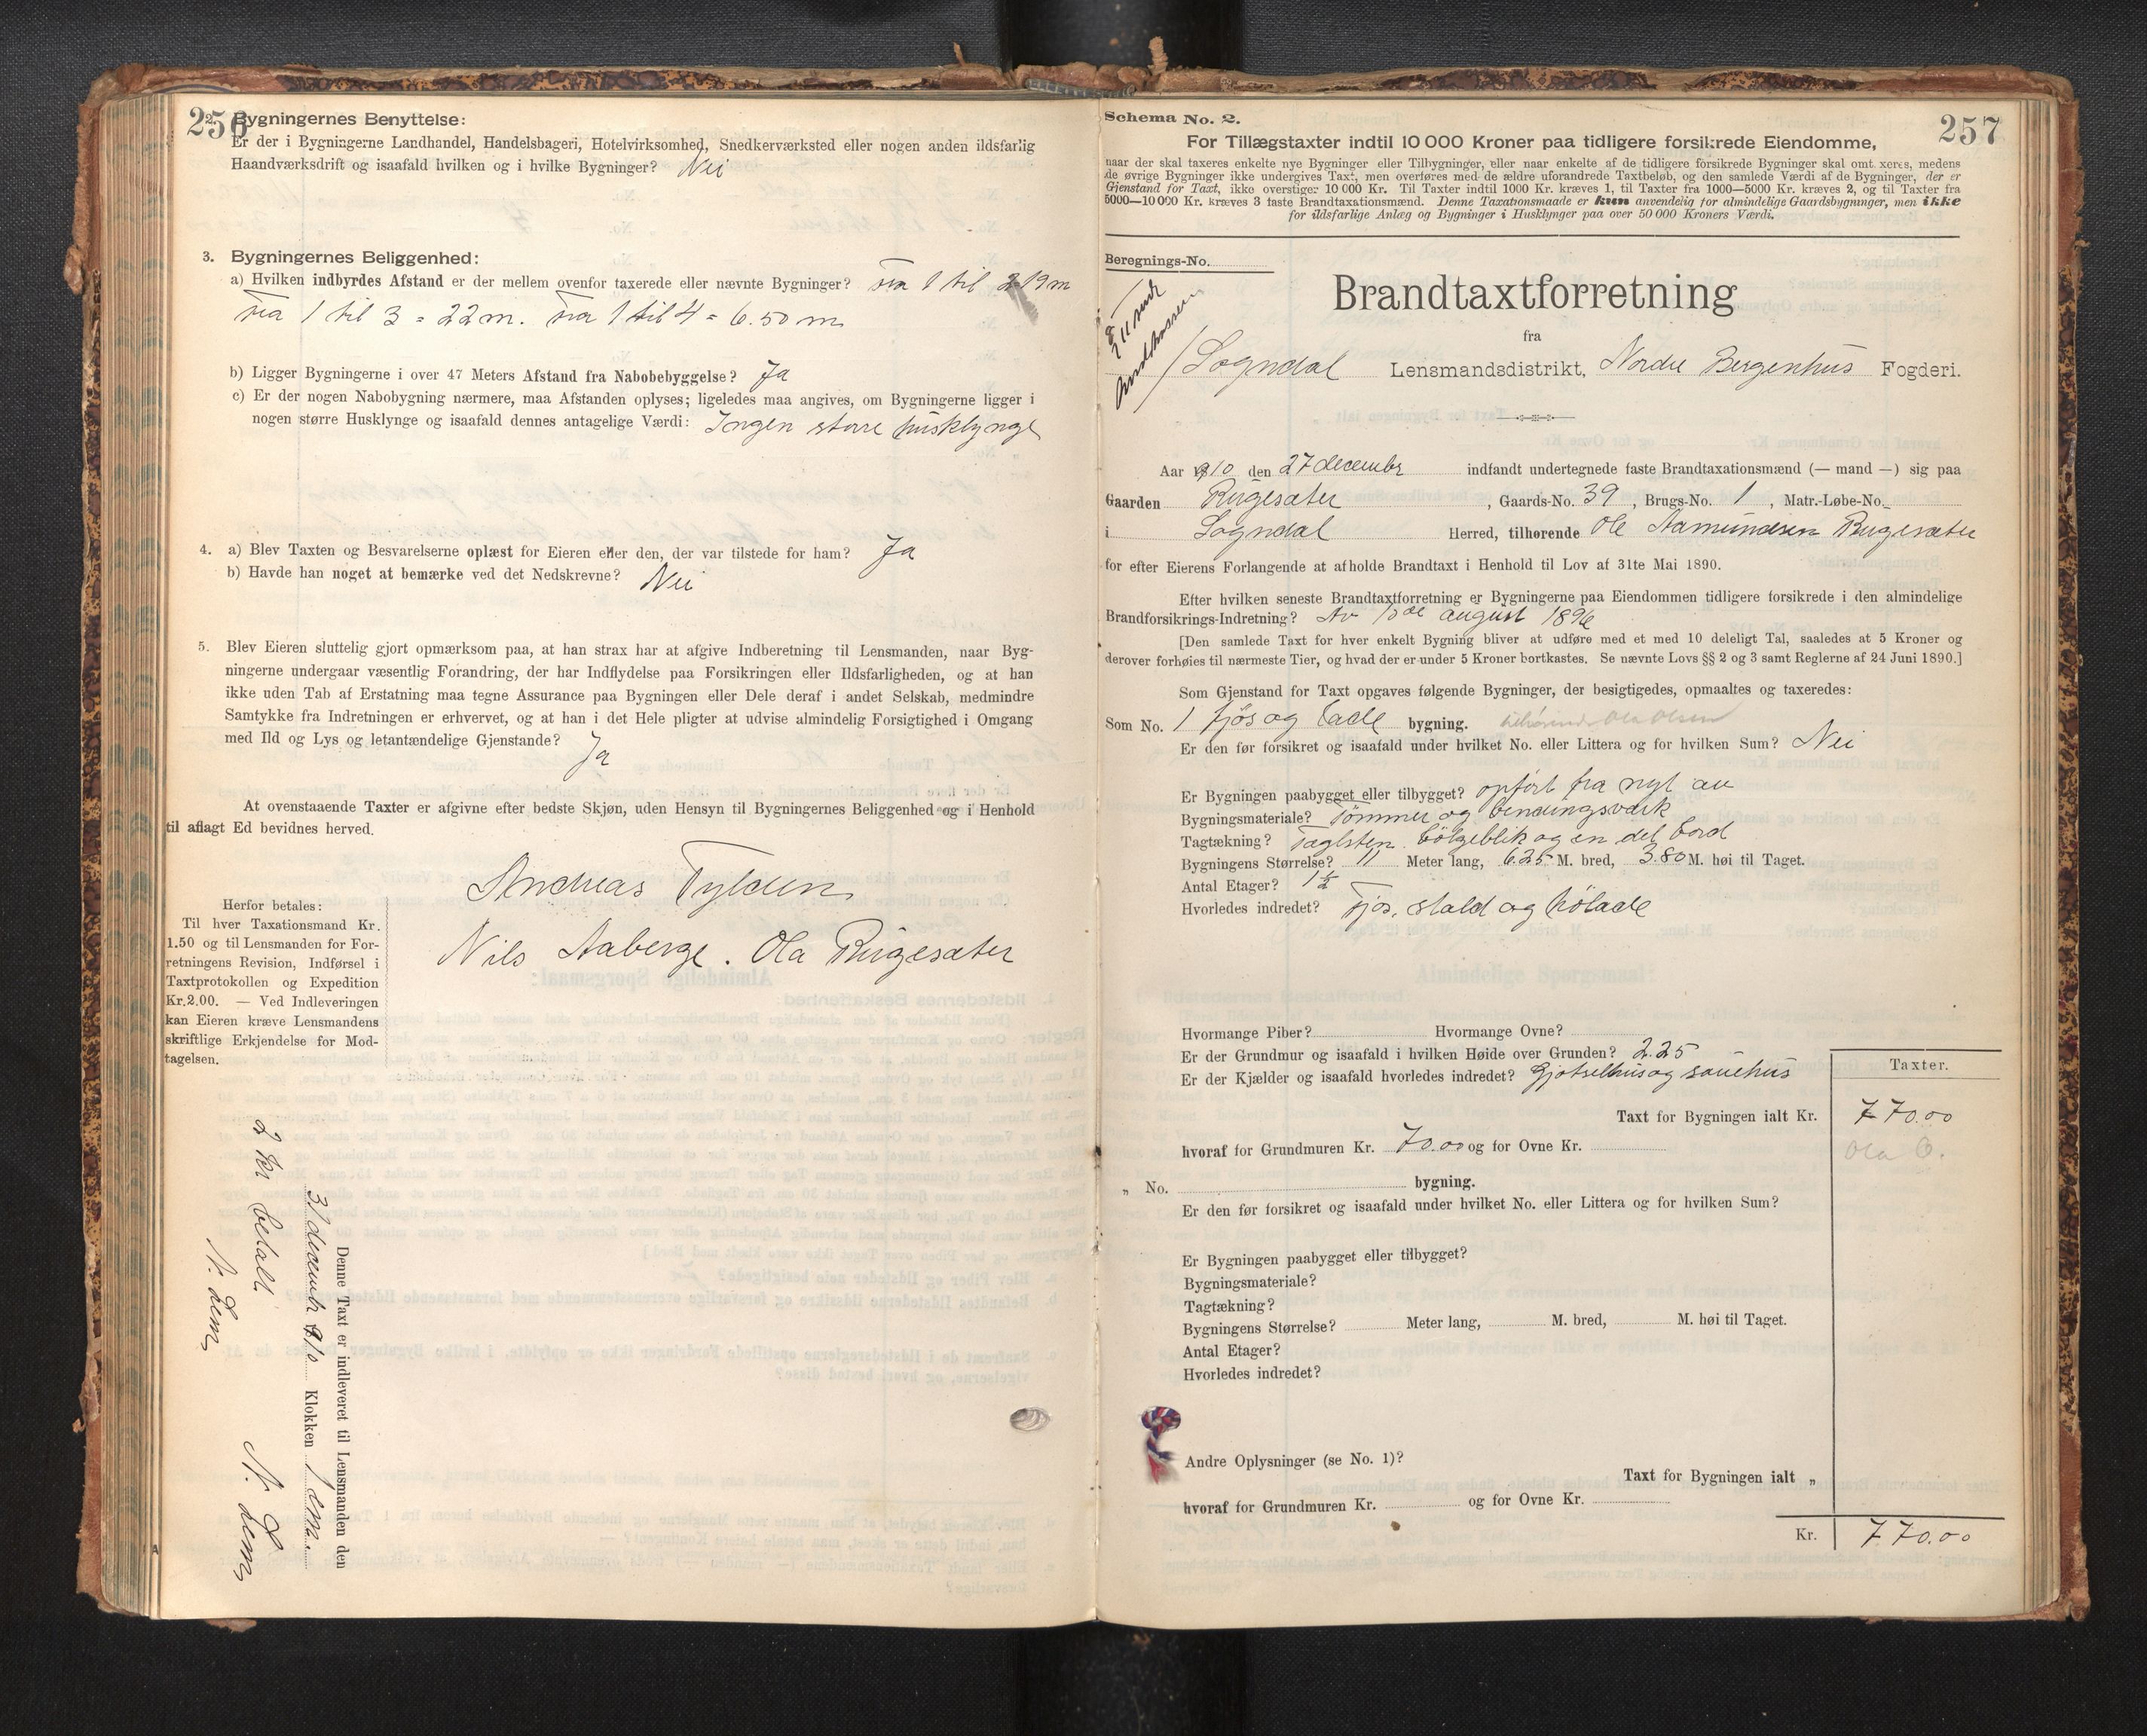 256
2. Bygningernes Benyttelse:
Er der i Bygningerne Landhandel, Handelsbageri, Hotelvirksomhed, Snedkerværksted eller nogen anden ildsfarlig
Haandværksdrift og isaafald hvilken og i hvilke Bygninger? Nei
3. Bygningernes Beliggenhed:
a) Hvilken indbyrdes Afstand er der mellem ovenfor taxerede eller nævnte Bygninger? Fra 1 til 2 19 m
Fra 1 til 3 = 22 m. Fra 1 til 4 = 6.50 m
b) Ligger Bygningerne i over 47 Meters Afstand fra Nabobebyggelse? Ja
c) Er der nogen Nabobygning nærmere, maa Afstanden oplyses; ligeledes maa angives, om Bygningerne ligger i
nogen større Husklynge og isaafald dennes antagelige Værdi: Ingen større husklynge
4. a) Blev Taxten og Besvarelserne oplæst for Eieren eller den, der var tilstede for ham? Ja
b) Havde han noget at bemærke ved det Nedskrevne? Nei
5. Blev Eieren sluttelig gjort opmærksom paa, at han strax har at afgive Indberetning til Lensmanden, naar Byg-
ningerne undergaar væsentlig Forandring, der har Indflydelse paa Forsikringen eller Ildsfarligheden, og at han
ikke uden Tab af Erstatning maa tegne Assurance paa Bygningen eller Dele deraf i andet Selskab, medmindre
Samtykke fra Indretningen er erhvervet, og at han i det Hele pligter at udvise almindelig Forsigtighed i Omgang
med Ild og Lys og letantændelige Gjenstande? Ja
At ovenstaaende Taxter er afgivne efter bedste Skjøn, uden Hensyn til Bygningernes Beliggenhed og i Henhold
til aflagt Ed bevidnes herved.
Andreas Tylden
Nils Aaberge. Ola Rugesæter
Herfor betales:
Til hver Taxationsmand Kr.
1.50 og til Lensmanden for For-
retningens Revision, Indførsel i
Taxtprotokollen og Expedition
Kr. 2.00. — Ved Indleveringen
kan Eieren kræve Lensmandens
skriftlige Erkjendelse for Mod-
tagelsen.
Denne Taxt er indleveret til Lensmanden den
31 decembr 910 Klokken 1 em.
N. Lem
2 kr betalt
N. Lem
257
Schema No. 2.
For Tillægstaxter indtil 10 000 Kroner paa tidligere forsikrede Eiendomme,
naar der skal taxeres enkelte nye Bygninger eller Tilbygninger, eller naar enkelte af de tidligere forsikrede Bygninger skal omtaxeres, medens
de øvrige Bygninger ikke undergives Taxt, men overføres med de ældre uforandrede Taxtbeløb, og den samlede Værdi af de Bygninger, der er
Gjenstand for Taxt, ikke overstiger 10 000 Kr. Til Taxter indtil 1000 Kr. kræves 1, til Taxter fra 1000—5000 Kr. kræves 2, og til Taxter fra
5000—10 000 Kr. kræves 3 faste Brandtaxationsmænd. Denne Taxationsmaade er kun anvendelig for almindelige Gaardsbygninger, men ikke
for ildsfarlige Anlæg og Bygninger i Husklynger paa over 50 000 Kroners Værdi.
Beregnings-No.
Brandtaxtforretning
fra
Sogndal Lensmandsdistrikt, Nordre Bergenhus Fogderi.
Aar 910 den 27 decembr indfandt undertegnede faste Brandtaxationsmænd (— mand —) sig paa
Gaarden Rugesæter, Gaards-No. 39, Brugs-No. 1, Matr.-Løbe-No.
i Sogndal Herred, tilhørende Ole Aamundsen Rugesæter
for efter Eierens Forlangende at afholde Brandtaxt i Henhold til Lov af 31te Mai 1890.
Efter hvilken seneste Brandtaxtforretning er Bygningerne paa Eiendommen tidligere forsikrede i den almindelige
Brandforsikrings-Indretning? Av 1ode august 1896
[Den samlede Taxt for hver enkelt Bygning bliver at udføre med et med 10 deleligt Tal, saaledes at 5 Kroner og
derover forhøies til nærmeste Tier, og hvad der er under 5 Kroner bortkastes. Se nævnte Lovs §§ 2 og 3 samt Reglerne af 24 Juni 1890.]
Som Gjenstand for Taxt opgaves følgende Bygninger, der besigtigedes, opmaaltes og taxeredes:
Som No. 1 fjøs og lade bygning. tilhørende Ola Olsen
Er den før forsikret og isaafald under hvilket No. eller Littera og for hvilken Sum? Nei
Er Bygningen paabygget eller tilbygget? opført fra nyt av
Bygningsmateriale? Tømmer og bindingsværk
Tagtækning? Taglsten bølgeblik og en del bord
Bygningens Størrelse? 11 Meter lang, 6.25 M. bred, 3.80 M. høi til Taget.
Antal Etager? 1½
Hvorledes indredet? Fjøs, stald og hølade
Hvormange Piber? Hvormange Ovne?
Er der Grundmur og isaafald i hvilken Høide over Grunden? 2.25
Er der Kjælder og isaafald hvorledes indredet? Gjødselhus og sauehus
Taxter.
Taxt for Bygningen ialt Kr. 770.00
hvoraf for Grundmuren Kr. 70.00 og for Ovne Kr.
Ola O.
„ No. bygning.
Er den før forsikret og isaafald under hvilket No. eller Littera og for hvilken Sum?
Er Bygningen paabygget eller tilbygget?
Bygningsmateriale?
Tagtækning?
Bygningens Størrelse? Meter lang, M. bred, M. høi til Taget.
Antal Etager?
Hvorledes indredet?
Andre Oplysninger (se No. 1)?
Taxt for Bygningen ialt „
hvoraf for Grundmuren Kr. og for Ovne Kr.
Kr. 770.00